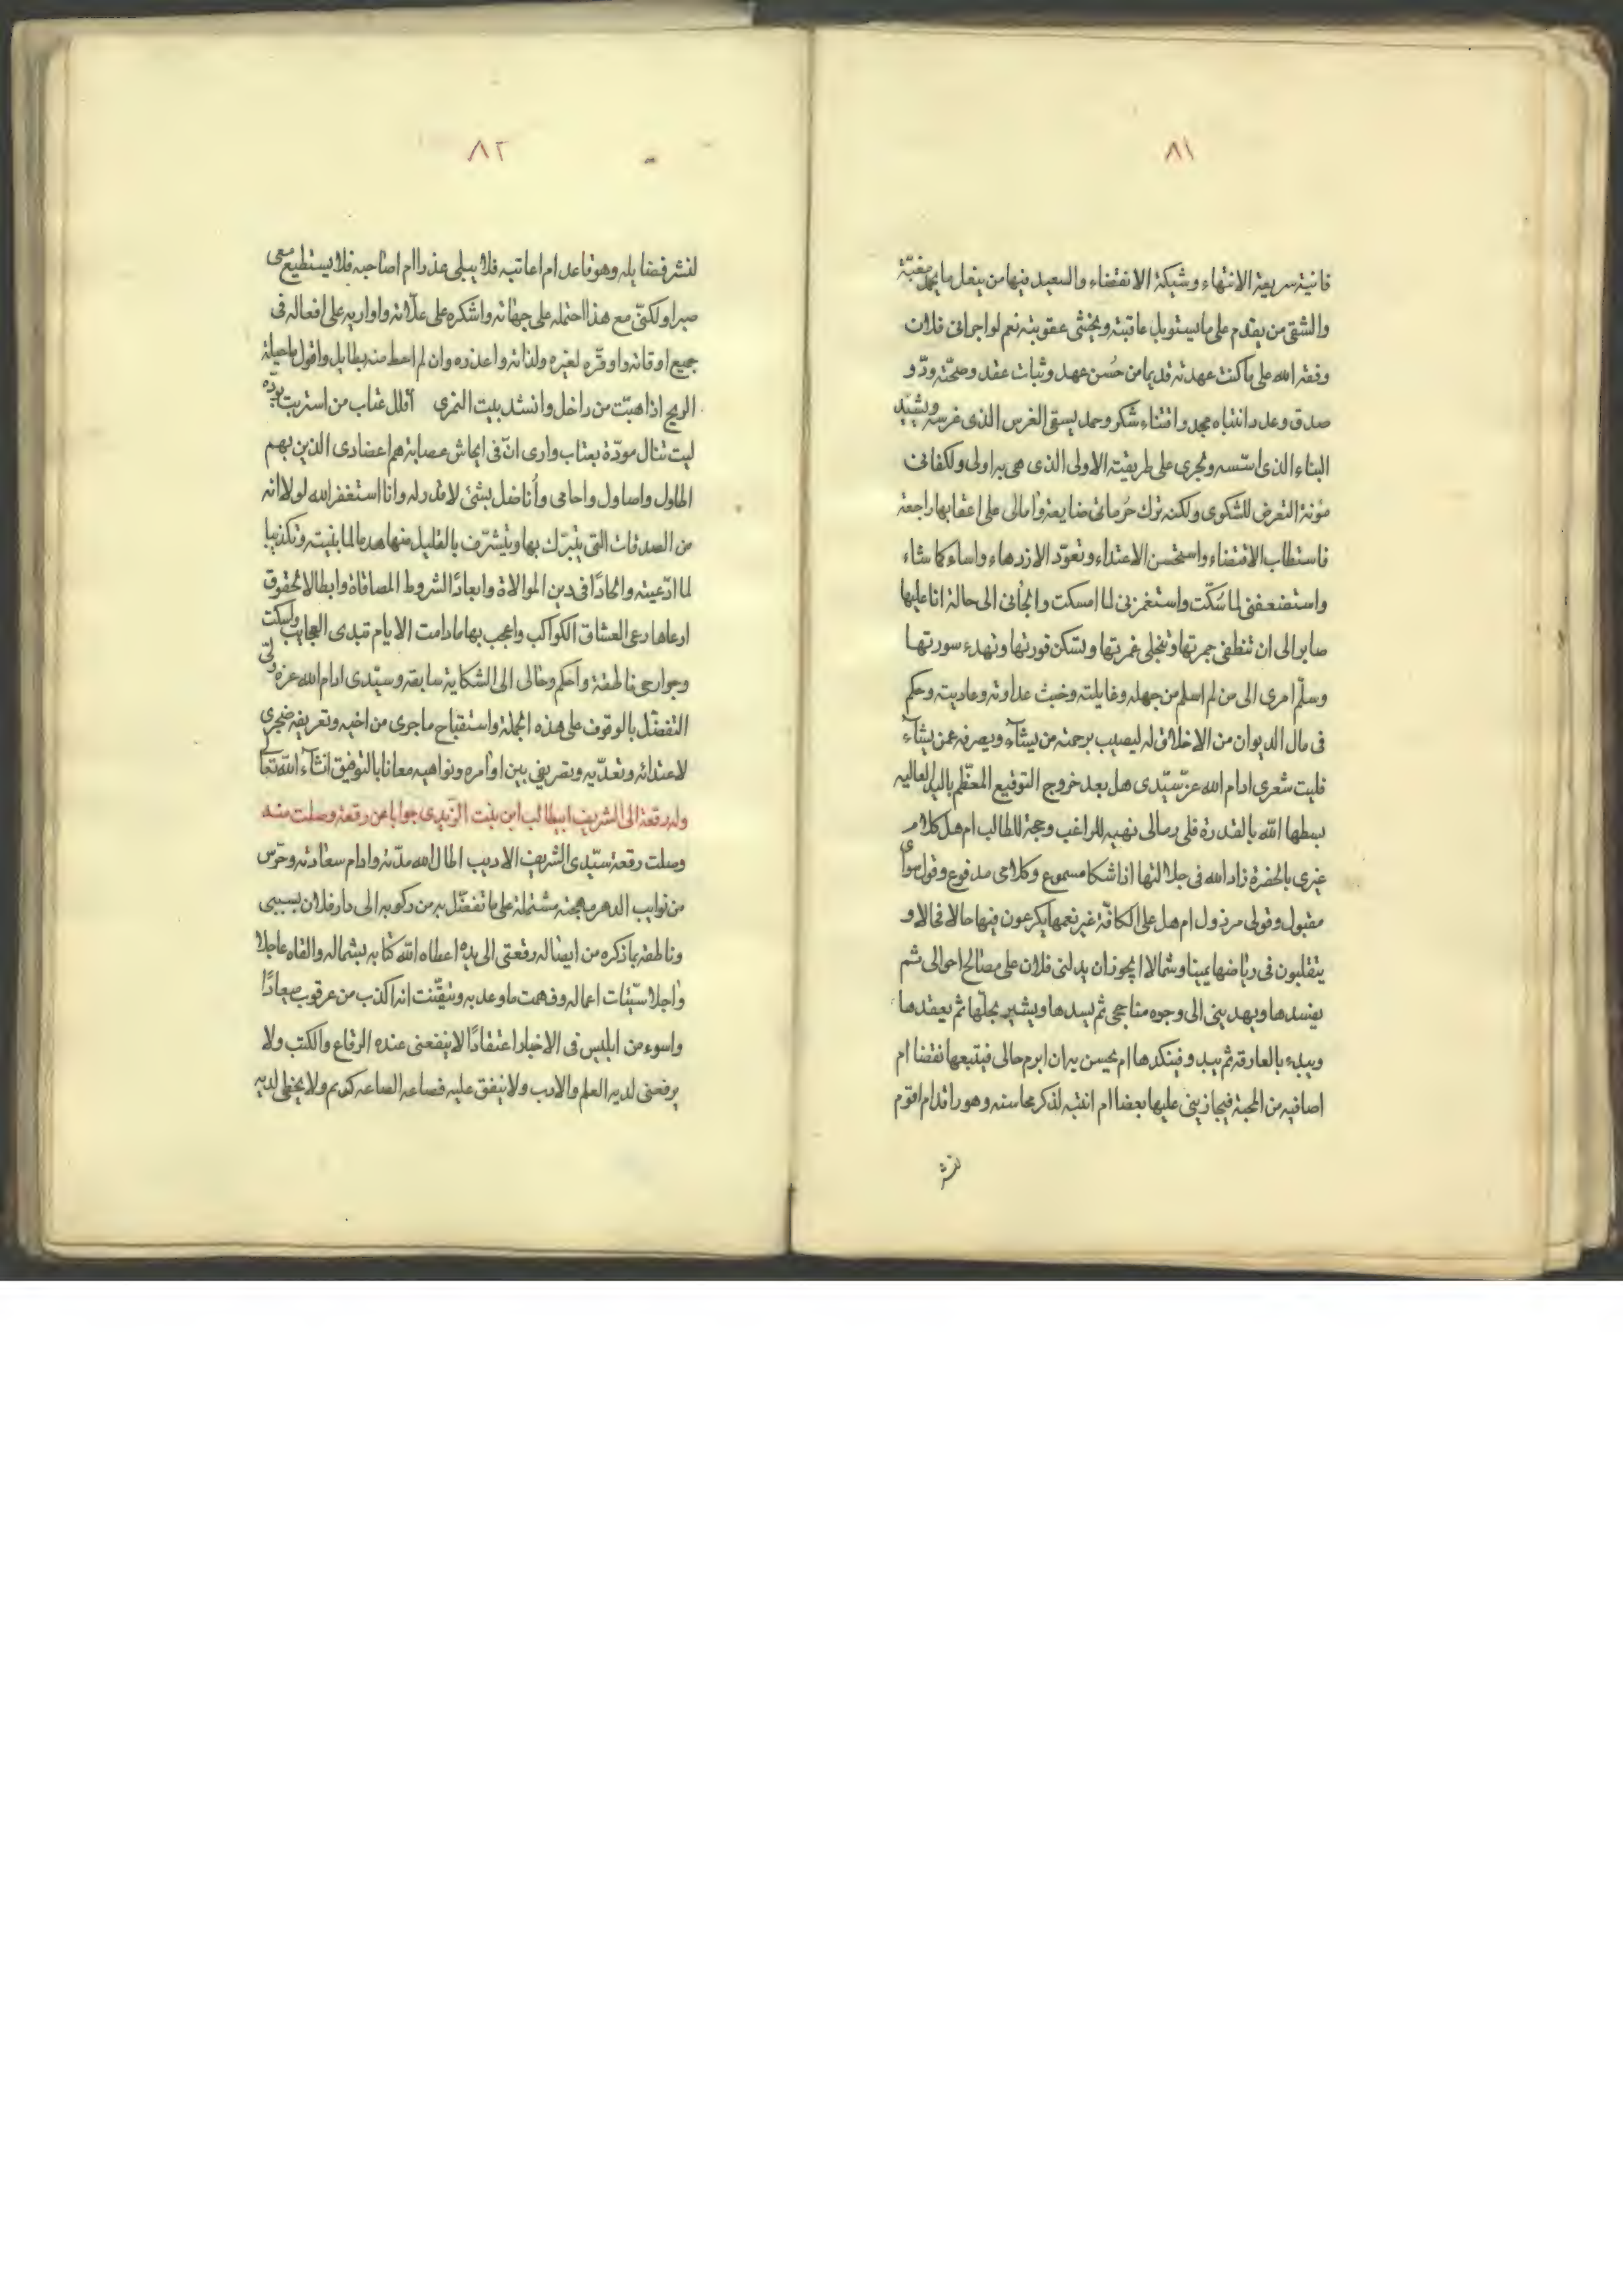 ٨١
فانية سريعة الانتهاء وشيكة الانقضاء والسعيد فيها من يفعل ما يحمد مغبّة
والشقى من يقدم على ما يستوبل عاقبته ويخشى عقوبته نعم لو اجرانى فلان
وفقه الله على ما كنت عهدته قديما من حُسن عهد وثبات عقد وصحّة ودّ و
صدق وعد واقتناه مجد واقتناء شكر وحمد يسقى الغرس الذى غرسه ويشيّد
البناء الذى اسّسه ويجرى على طريقته الاولى الذى هى به اولى ولكفانى
مؤنة التعرض للشكوى ولكنه ترك حُرماتى ضايعة وآمالى على اعقابها راجعة
فاستطاب الاقتضاء واستحسن الاعتداء وتعوّد الازدهاء واساء كما شاء
واستضعفنى لما سَكّت واستغمزنى لما امسكت والجأنى الى حالة انا عليها
صابر الى ان تنطفى جمرتها وتنجلى غمرتها وتسكن فورتها وتهدء سورتها
وسلّم امرى الى من لم اسلم من جهله وغايلته وخبث عداوته وعاديته وحكم
فى مال الديوان من الاخلاق له ليصيب برحمته من يشآء ويصرفه عن يشآء
فليت شعرى ادام الله عزّ سيّدى هل بعد خروج التوقيع المعظّم باليد العاليه
بسطها الله بالقدرة فلى رمالى نهبه للراغب وحجة للطالب ام هل كلام
غيرى بالحضرة زاد الله فى جلالتها اذا شكا مسموع وكلامى مدفوع وقول سواى
مقبول وقولى مرذول ام هل على الكافّة غير نعمها يكرعون فيها حالا فحالا و
يتقلبون فى رياضها يمينا وشمالا ايجوز ان يدلنى فلان على مصالح احوالى ثم
يفسدها ويهدينى الى وجوه مناجحى ثم يسدها ويشير بحلّها ثم يعقدها
ويبدء بالعارفه ثم يبدو فينكدها ام يحسن به ان ابرم حالى فيتبعها نقضا ام
اصافيه من المحبة فيجازينى عليها بعضا ام انتبه لذكر محاسنه وهو راقد ام اقوم
لنشر
٨٢
لنشر فضايله وهو قاعد ام اعاتبه فلا يبلى عذرا ام اصاحبه فلا يستطيع معى
صبرا ولكنّى مع هذا احتمله على جهاته واشكره على علّاته واواريه على افعاله فى
جميع اوقاته واوقّره لغيره ولذاته واعذره وان لم احط منه بطايل واقول ما حيلة
الريح اذا هبّت من داخل وانشد بيت النمرى اقلل عتاب من استربت بودّه
ليت تنال مودّة بعتاب وارى انّ فى ايحاش عصابة هم اعضادى الذين بهم
اطاول واصاول واحامى وأناضل بشئ لا قدر له وانا استغفر الله لولا انه
من الصدقات التى يتبرّك بها ويتشرّف بالقليل منها هدما لما بنيته وتكذيبا
لما ادّعيته والحادًا فى دين الموالاة وابعادًا لشروط المصافاة وابطالا لحقوق
ارعاها رعى العشاق الكواكب واعجب بها ما دامت الايام تبدى العجايب واسكت
وجوارحى ناطقة واحكم وحالى الى الشكاية سابقه وسيّدى ادام الله عزه ولىّ
التفضّل بالوقوف على هذه الجملة واستقباح ما جرى من اخيه وتعريفه ضجرى
لاعتدائه وتعدّيه وتصريفى بين اوامره ونواهيه معانا بالتوفيق انشآء الله تعالى
وله رقعة الى الشريف ابيطالب ابن بنت الزيدى جوابا عن رقعة وصلت منه
وصلت رقعة سيّدى الشريف الاديب اطال الله مدّته وادام سعادته وحرّس
من نوايب الدهر مهجته مشتملة على ما تفضّل به من ركوبه الى دار فلان بسببى
وناطقة بما ذكره من ايصاله رقعتى الى يده اعطاه الله كتابه بشماله والقاه عاجلا
وآجلا سيّئات اعماله وفهمت ما وعد به وتيقّنت انه اكذب من عرقوب ميعادًا
واسوء من ابليس فى الاخيار اعتقادًا لا ينفعنى عنده الرقاع والكتب ولا
يرفعنى لديه العلم والادب ولا ينفق عليه فصاعه الصاعه كريم ولا يحظى لديه